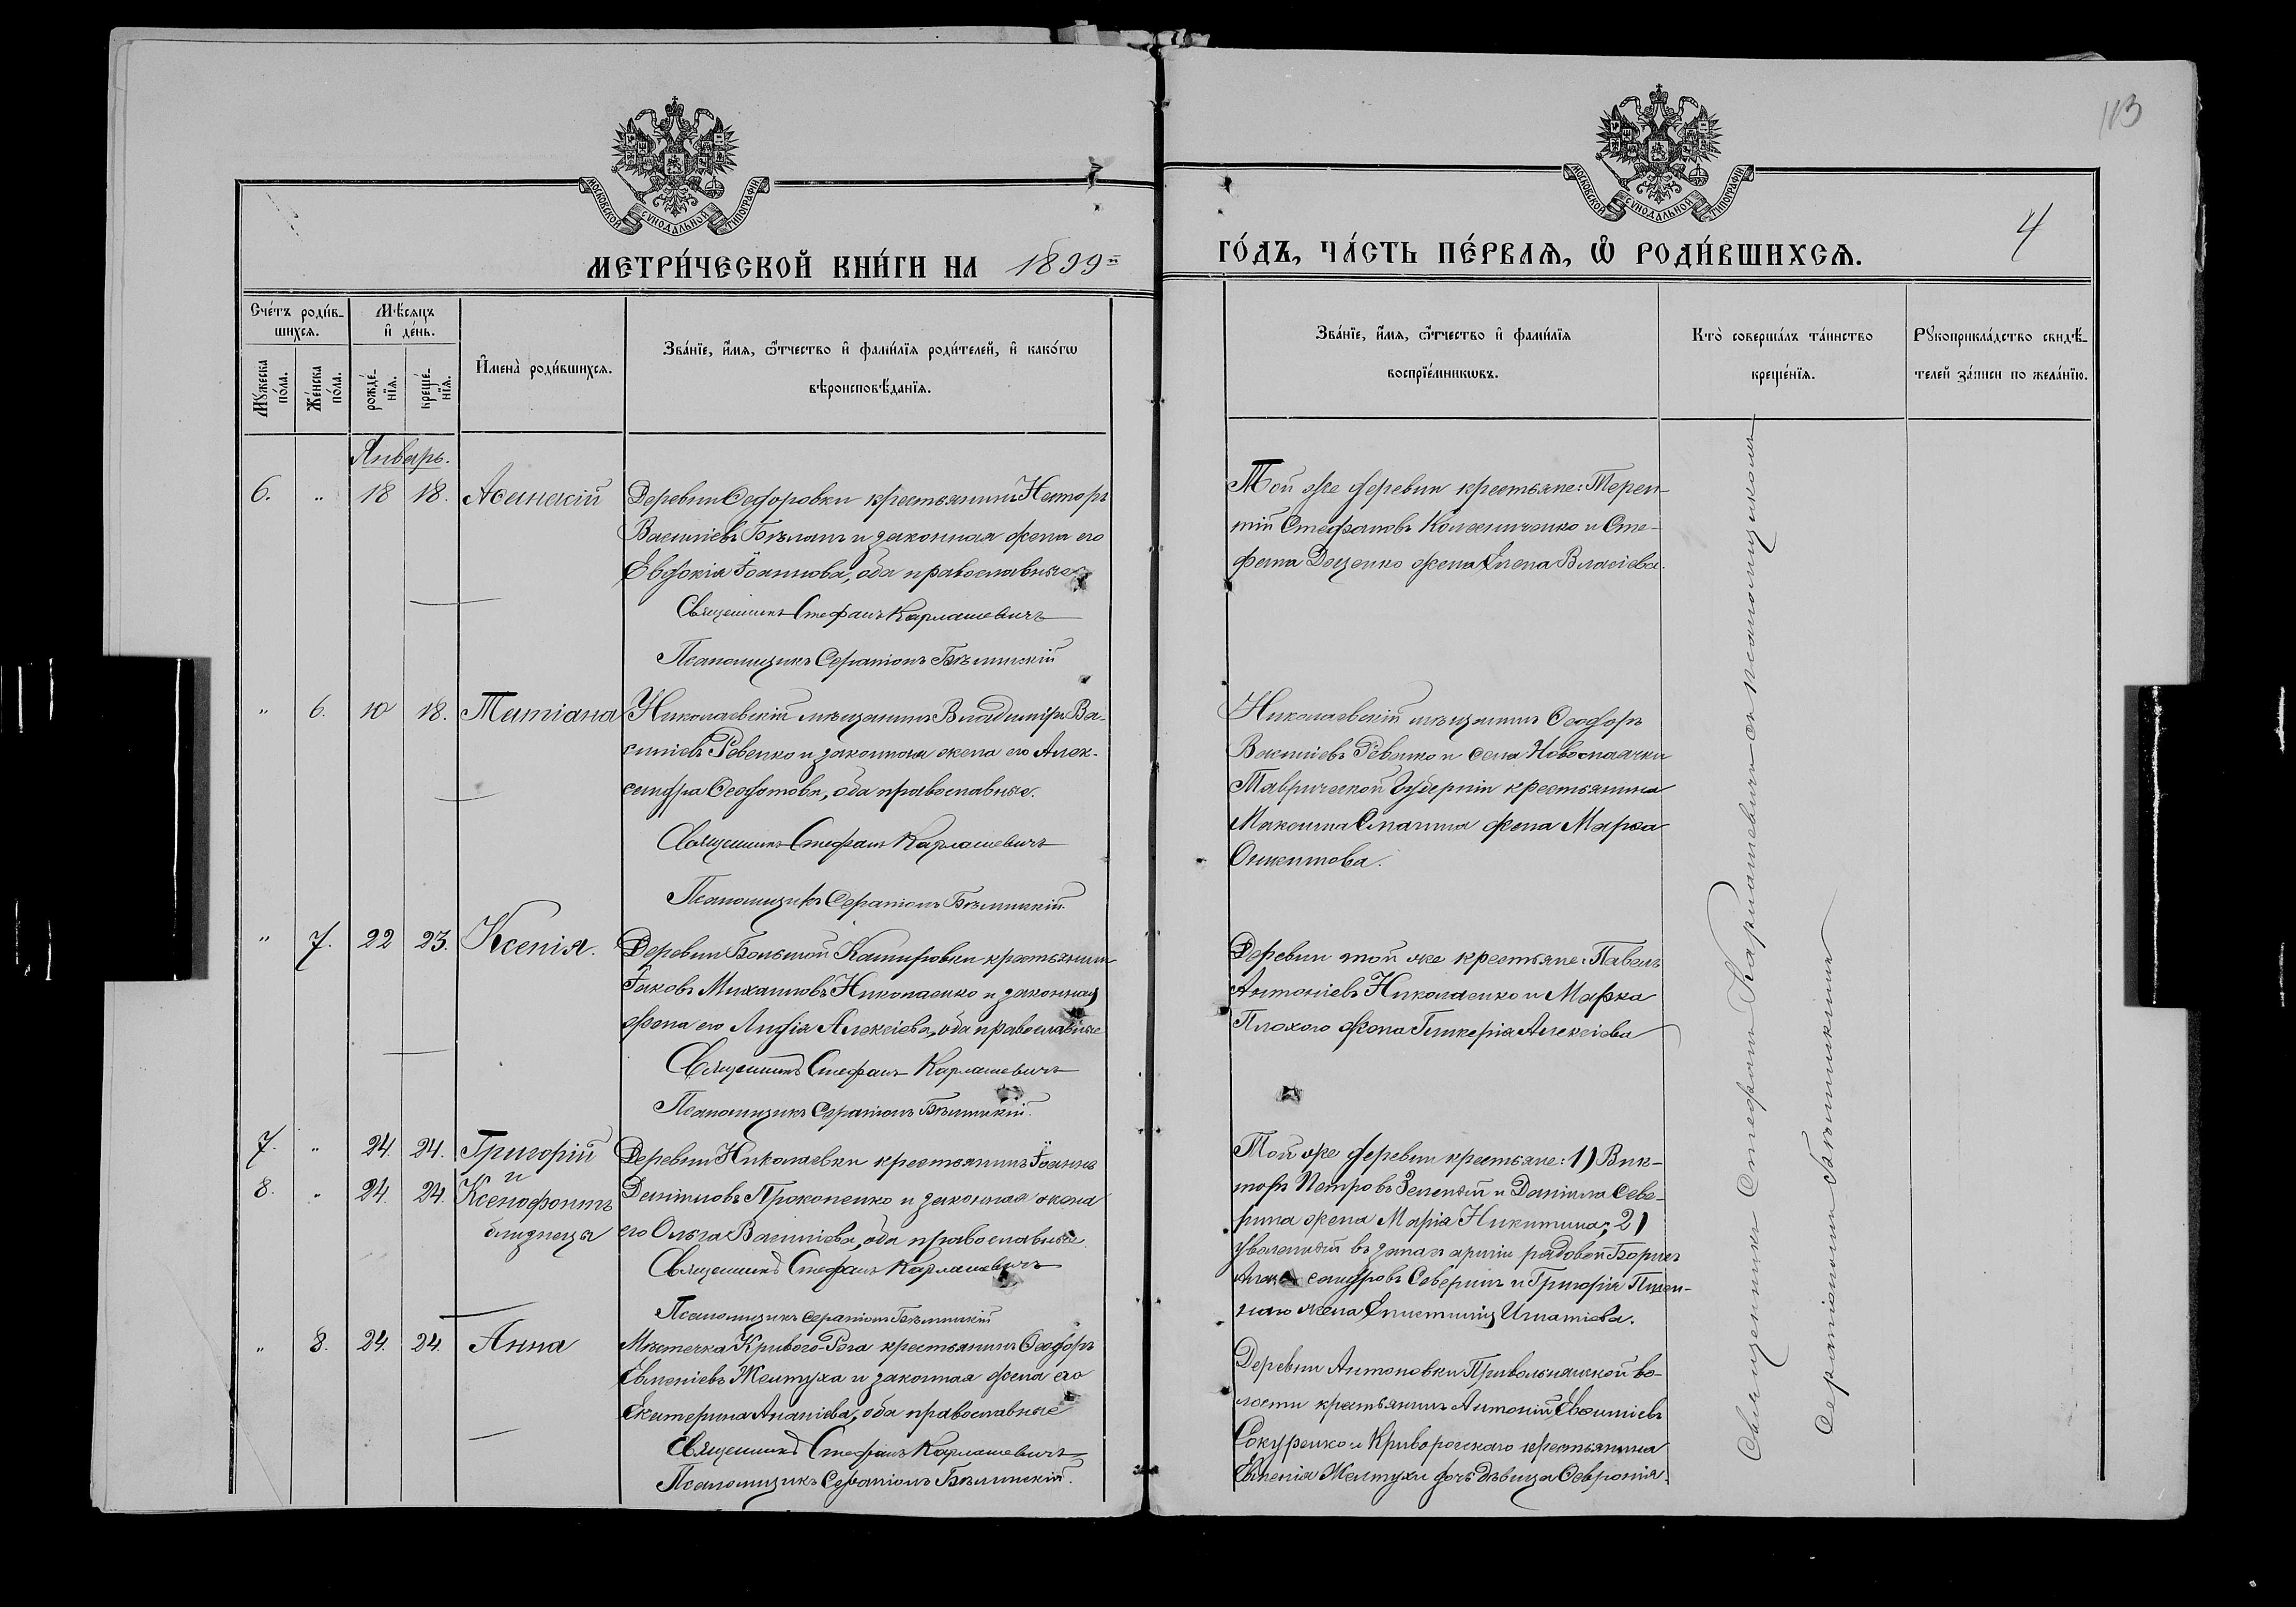 113
МОСКОВСКОЙ СѴНОДАЛЬНОЙ ТИПОГРАФІИ
МОСКОВСКОЙ СѴНОДАЛЬНОЙ ТИПОГРАФІИ
4
МЕТРИ́ЧЕСКОЙ КНИ́ГИ НА 1899й ГО́ДЪ, ЧА́СТЬ ПЕ́РВАѦ, Ѡ҆ РОДИ́ВШИХСѦ.
Сче́тъ роди́в-
шихсѧ.
Мꙋ́жеска по́ла.
Же́нска по́ла.
Мѣ́сѧцъ и҆ де́нь.
рожде́-нїѧ.
креще́-нїѧ.
И҆мена̀ роди́вшихсѧ.
Зва́нїе, и҆́мѧ, ѻ҆́тчество и҆ фами́лїѧ роди́телей, и҆ како́гѡ
вѣроисповѣ́данїѧ.
Зва́нїе, и҆́мѧ, ѻ҆́тчество и҆ фами́лїѧ
воспрїе́мникѡвъ.
Кто̀ соверша́лъ та́инство
креще́нїѧ.
Рꙋкоприкла́дство свидѣ́-
телей за́писи по жела́нїю.
Январь.
6. " 18 18. Аѳанасій
Деревни Ѳедоровки крестьянинъ Несторъ
Васильевъ Бѣланъ и законная жена его
Евдокія Іоаннова, оба православные
Священникъ Стефанъ Карлашевичъ
Псаломщикъ Серапіонъ Бѣлинскій
Той же деревни крестьяне: Терен-
тій Стефановъ Колесниченко и Сте-
фана Доценко жена Елена Власіева.
" 6. 10 18. Татіана
Николаевскій мѣщанинъ Владиміръ Ва-
силіевъ Ревенко и законная жена его Алек-
сандра Ѳеодотова, оба православные.
Священникъ Стефанъ Карлашевичъ
Псаломщикъ Серапіонъ Бѣлинскій
Николаевскій мѣщанинъ Ѳеодоръ
Василіевъ Ревенко и села Новомаячки
Таврической губерніи крестьянина
Максима жена Марѳа
" 7. 22 23. Ксенія.
Деревни Большой Кашировки крестьянинъ
Іаковъ Михаиловъ Николаенко и законная
жена его Лидія Алексіева, оба православные
Священникъ Стефанъ Карлашевичъ
Псаломщикъ Серапіонъ Бѣлинскій.
Деревни той же крестьяне: Павелъ
Антоніевъ Николаенко и Марка
Плохого жена Гликерія Алексіева
7. " 24. 24. Григорій
и
8. " 24. 24. Ксенофонтъ
близнецы
Деревни Николаевки крестьянинъ Іоаннъ
Даніиловъ Прокопенко и законная жена
его Ольга Василіева, оба православные.
Священникъ Стефанъ Карлашевичъ
Псаломщикъ Серапіонъ Бѣлинскій
Той же деревни крестьяне: 1) Вик-
торъ Петровъ Зеленый и Даніила Севе-
рина жена Марія Никитина; 2)
Уволенный въ запасъ арміи рядовой Борисъ
Александровъ Северинъ и Григорія Пшен-
наго жена Епистимія Игнатіева.
" 8. 24. 24. Анна
Мѣстечка Кривого-Рога крестьянинъ Ѳеодоръ
Евменіевъ Желтуха и законная жена его
Екатерина Ананіева, оба православные
Священникъ Стефанъ Карлашевичъ
Псаломщикъ Серапіонъ Бѣлинскій.
Деревни Антоновки Привольнянской во-
лости крестьянинъ Антоній Евѳиміевъ
Сокуренко и Криворогскаго крестьянина
Евменія Желтухи дочь дѣвица Ѳевронія.
Священникъ Стефанъ Карлашевичъ съ псаломщикомъ
Серапіономъ Бѣлинскимъ